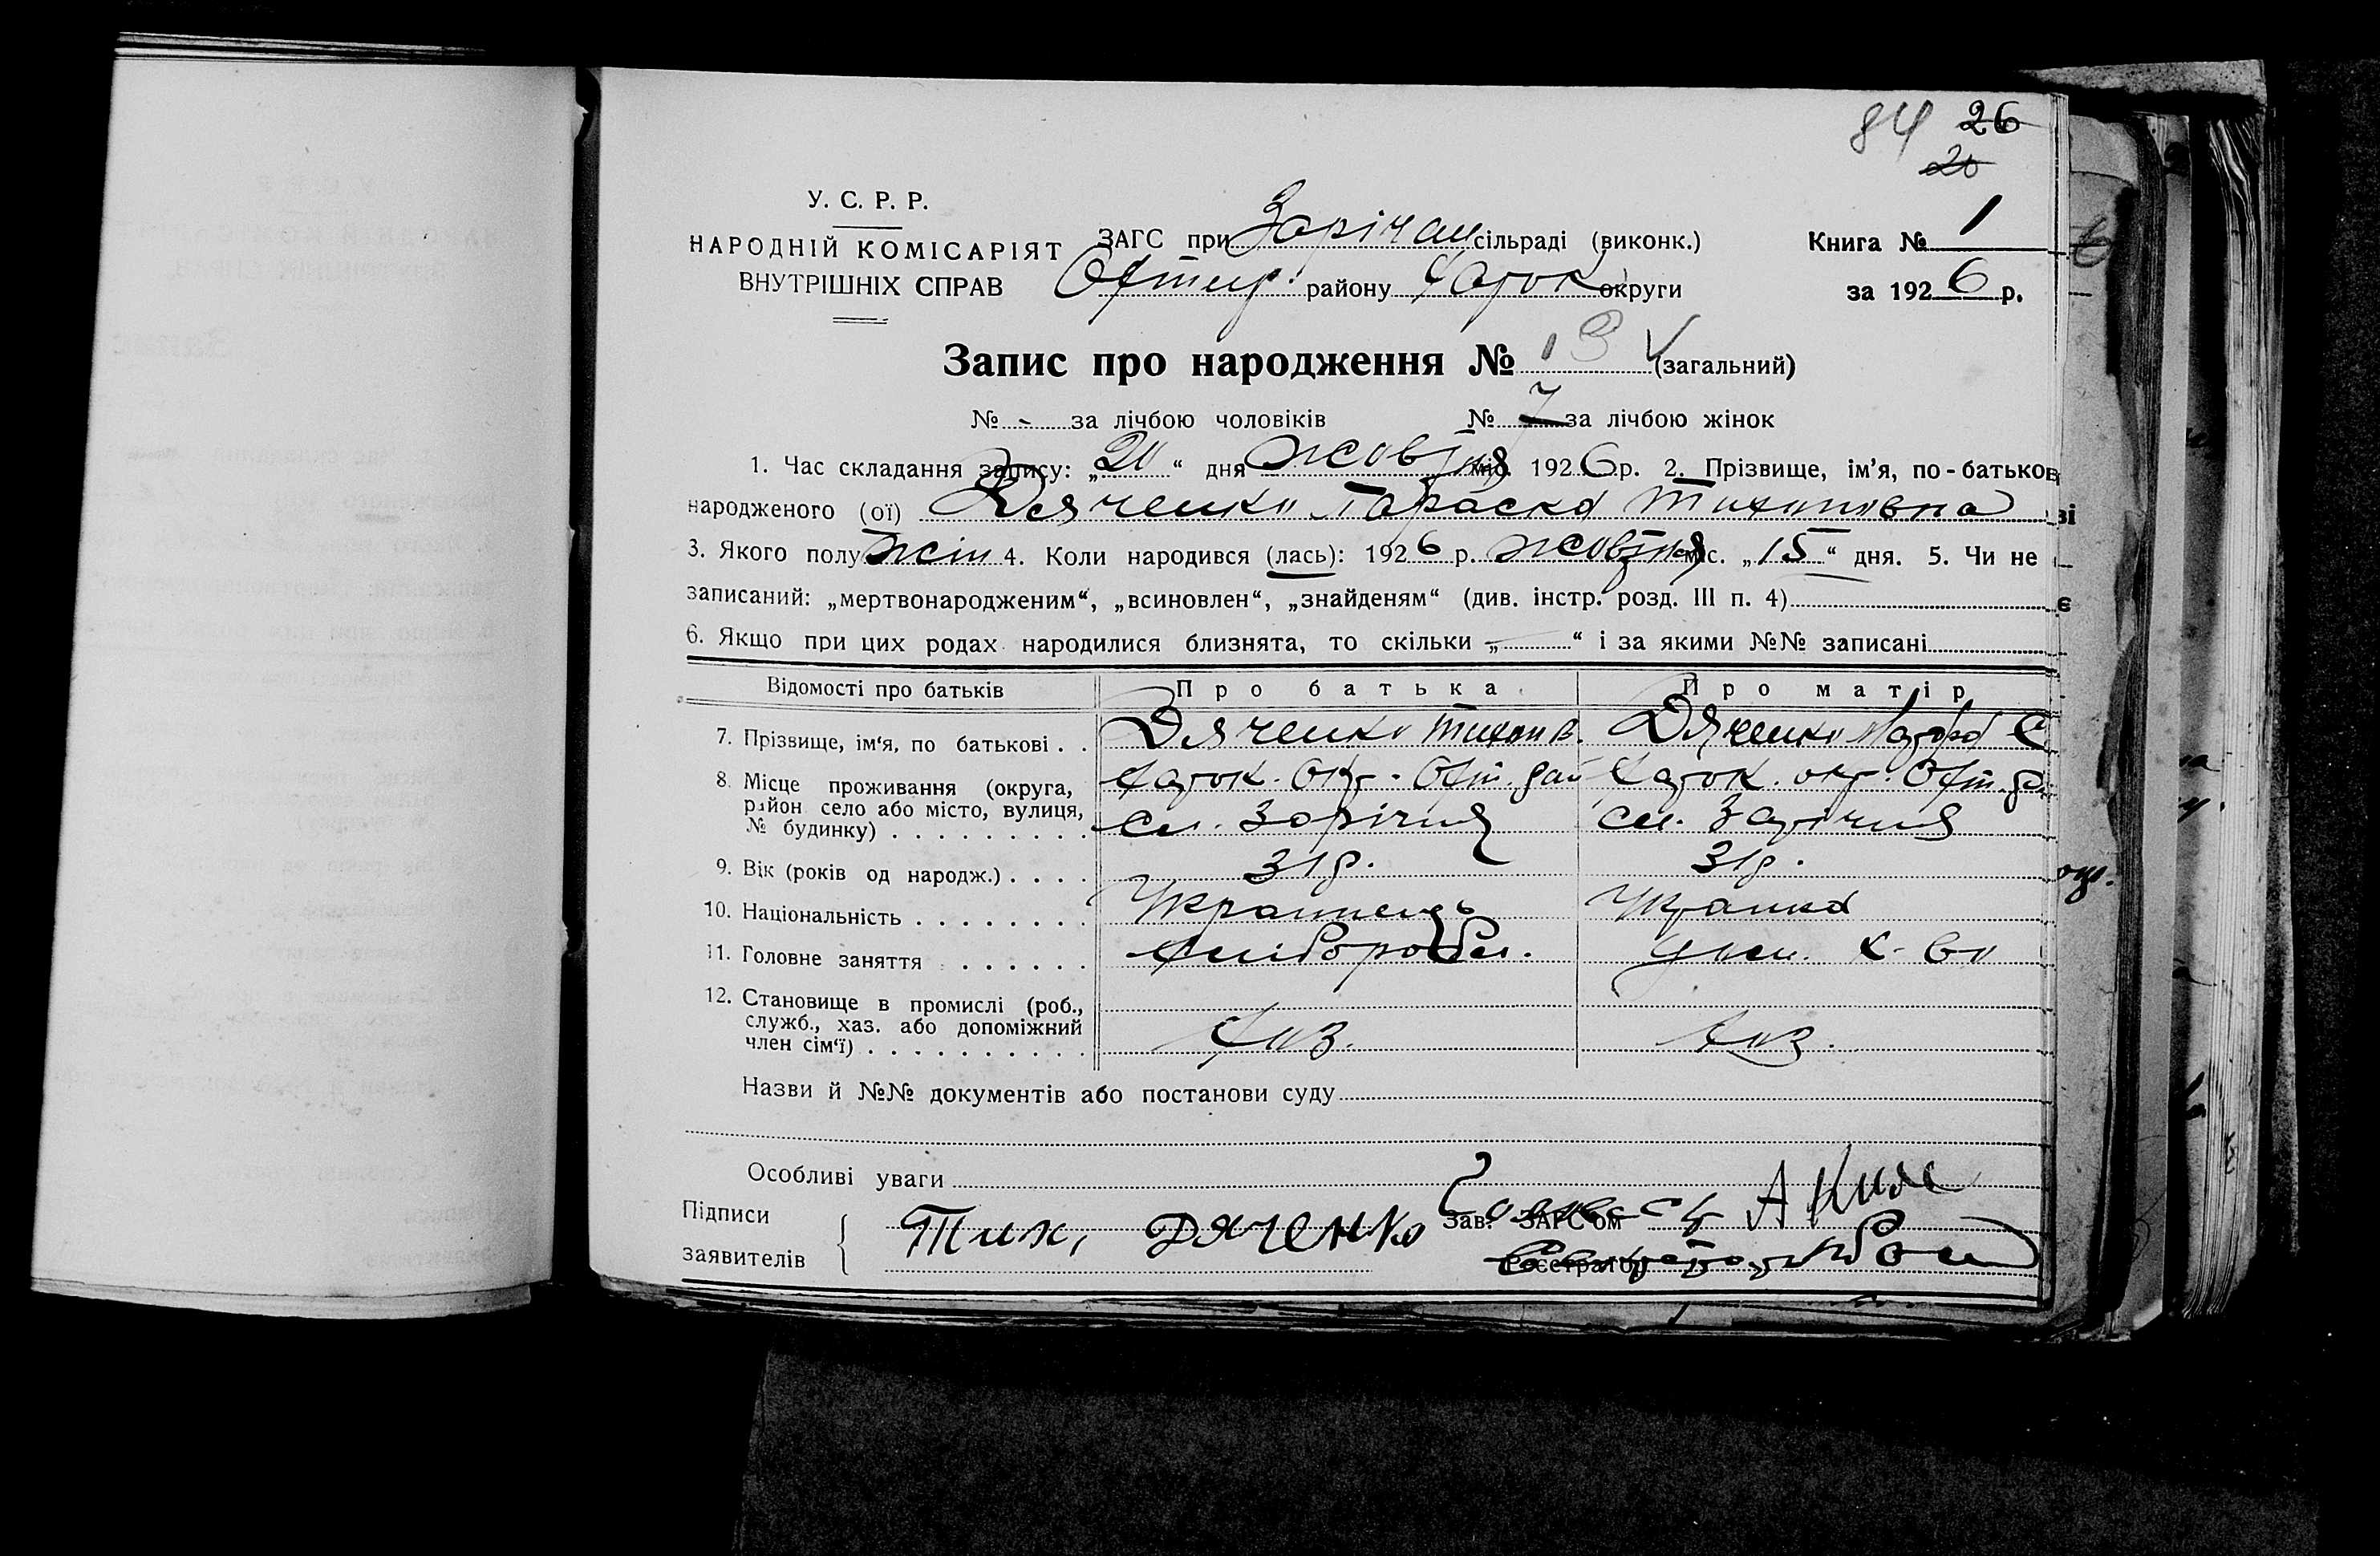 84 26
20
У. С. Р. Р.
НАРОДНІЙ КОМІСАРІЯТ
ВНУТРІШНІХ СПРАВ
ЗАГС при Зарічан сільраді (виконк.)
Охтир. району Харок округи
Книга № 1
за 1926 р.
Запис про народження № 13 (загальний)
№ - за лічбою чоловіків № 7 за лічбою жінок
1. Час складання запису: „20“ дня жовтня міс. 1926 р. 2. Прізвище, ім’я, по-батьков
народженого (ої) Дяченко Параска Тихонівна
3. Якого полу жін 4. Коли народився (лась): 1926 р. жовтня міс. „15“ дня. 5. Чи не
записаний: „мертвонародженим“, „всиновлен“, „знайденям“ (див. інстр. розд. III п. 4)
6. Якщо при цих родах народилися близнята, то скільки „ “ і за якими №№ записані
Відомості про батьків Про батька Про матір
7. Прізвище, ім‘я, по батькові Дяченко Тихон В. Дяченко С
8. Місце проживання (округа, район село або місто, вулиця, № будинку) Харок. окр. Охт. рай Харок. окр. Охт. ра
сл. Зарічня сл. Зарічня
9. Вік (років од народж.) 31 р. 31 р.
10. Національність Українець Українка
11. Головне заняття хлібороб
12. Становище в промислі (роб., служб., хаз. або допоміжний член сім‘ї) хоз. хоз.
Назви й №№ документів або постанови суду
Особливі уваги
Підписи
заявителів
Тих. Дяченко
Зав. ЗАГС‘ом
Реєстратор